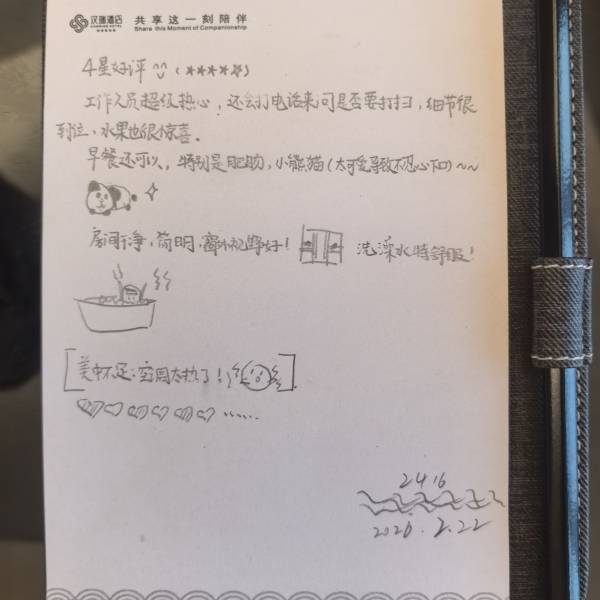 汉瑞酒店
共享这一刻陪伴
Share this Moment of Companionship
4星好评 (★★★★☆)
工作人员超级热心，还会打电话来问是否要打扫，细节很
到位，水果也很惊喜。
早餐还可以，特别是肥肠，小熊猫(太可爱导致不忍心下口)~~
房间干净，简明，窗外视野好！
洗澡水特舒服！
[美中不足：空调太热了！]
......
2416
2026.2.22